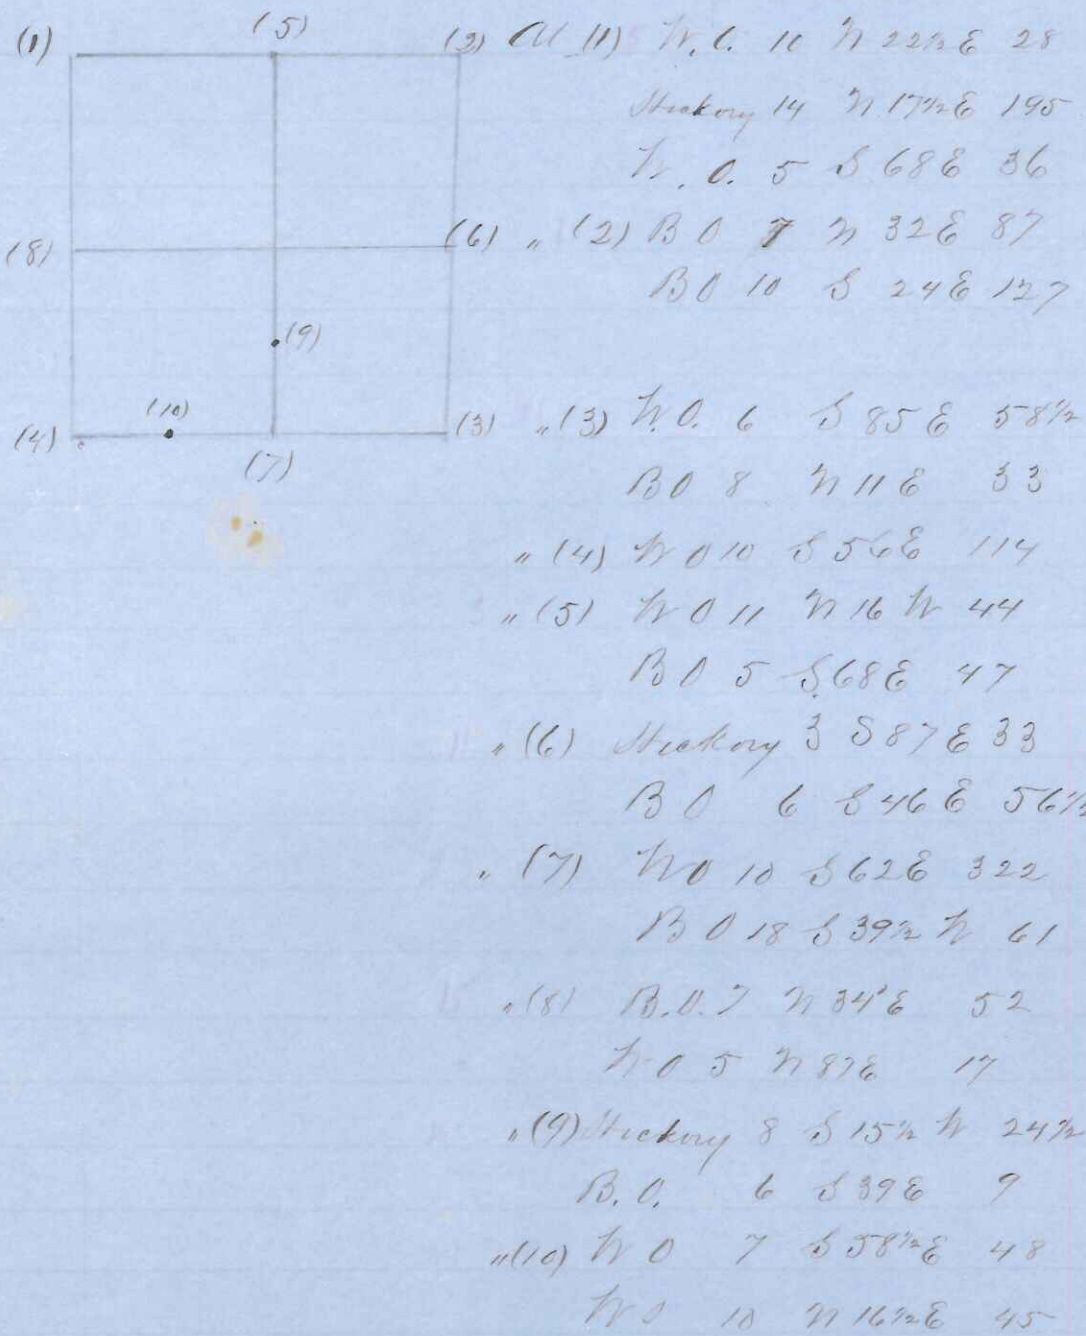 (1) (5) (2) At (1) W. O. 10 N 22½ E 28
Hickory 14 N 17½ E 195
W. O. 5 S 68 E 36
(8) (6) " (2) B O 7 N 32 E 87
B O 10 S 24 E 127
(9)
(4) (10) (3) " (3) W. O. 6 S 85 E 58½
(7) B O 8 N 11 E 33
" (4) W O 10 S 56 E 114
" (5) W O 11 N 16 W 44
B O 5 S 68 E 47
" (6) Hickory 3 S 87 E 33
B O 6 S 46 E 56½
" (7) W O 10 S 62 E 322
B O 18 S 39½ W 61
" (8) B. O. 7 N 34° E 52
W O 5 N 87 E 17
" (9) Hickory 8 S 15½ W 24½
B. O. 6 S 39 E 9
" (10) W O 7 S 58½ E 48
W O 10 N 16½ E 45